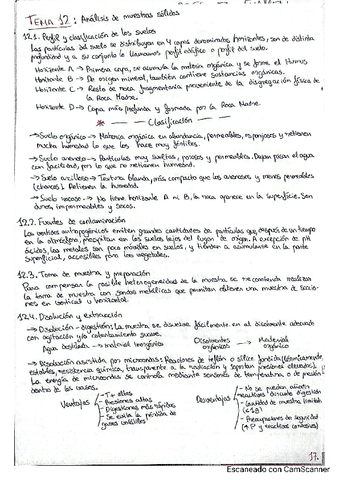 TEMA 12: Análisis de muestras sólidas
12.1. Perfil y clasificación de los suelos
Las partículas del suelo se distribuyen en 4 capas denominadas horizontes, son de distinta
profundidad y a su conjunto le llamamos perfil edáfico o perfil del suelo.
Horizonte A → Primera capa, se acumula la materia orgánica y se forma el Humus
Horizonte B → De origen mineral, también contiene sustancias orgánicas.
Horizonte C → Resto de roca fragmentaria proveniente de la disgregación física de
la Roca Madre.
Horizonte D → Capa más profunda y formada por la Roca Madre.
Clasificación
→ Suelo orgánico → Materia orgánica en abundancia, permeables, esponjosos y retienen
mucha humedad lo que los hace muy fértiles.
→ Suelo arenoso → Partículas muy sueltas, porosos y permeables. Dejan pasar el agua
con facilidad, por lo que no retienen humedad.
→ Suelo arcilloso → Textura blanda, más compacto que los arenosos y menos permeables
(charcos). Retienen la humedad.
→ Suelo rocoso → No tiene horizonte A ni B, la roca aparece en la superficie. Son
duros, impermeables y secos.
12.2. Fuentes de contaminación
Los vertidos antropogénicos emiten grandes cantidades de partículas que después de un tiempo
en la atmósfera, precipitan en los suelos lejos del lugar de origen. A excepción de pH
ácidos, los metales son poco móviles en suelos, y tienden a acumularse en la parte
superficial, accesibles para los vegetales.
12.3. Toma de muestra y preparación
Para compensar la posible heterogeneidad de la muestra se recomienda realizar
la toma de muestra con sondas metálicas que permitan obtener una muestra de seccio-
nes en vertical u horizontal.
12.4. Disolución y extracción
→ Disolución-digestión: La muestra se disuelve fácilmente en el disolvente adecuado
con agitación y/o calentamiento suave.
Agua destilada → material inorgánico Disolventes orgánicos → Material orgánico
→ Disolución asistida por microondas: Reacciones de teflón o sílice fundida (térmicamente
estables, resistencia química, transparente a la radiación y soportan presiones elevadas).
La energía de microondas se controla mediante sensores de temperatura o de presión
dentro de los vasos.
Ventajas
- Tª altas
- Presiones altas
- Digestiones más rápidas
- Se evita la pérdida de
gases volátiles
Desventajas
- No se pueden añadir
reactivos durante digestión
- Cantidad de muestra limitada
- Precauciones de seguridad
17.
Escaneado con CamScanner